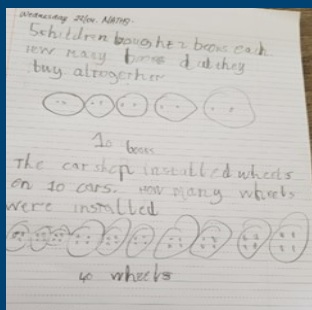 Wednesday MATHS.
5 children bought 2 books each
How many books did they
buy altogether
10 books
The car shop installed wheels
on 10 cars. How many wheels
were installed
40 wheels